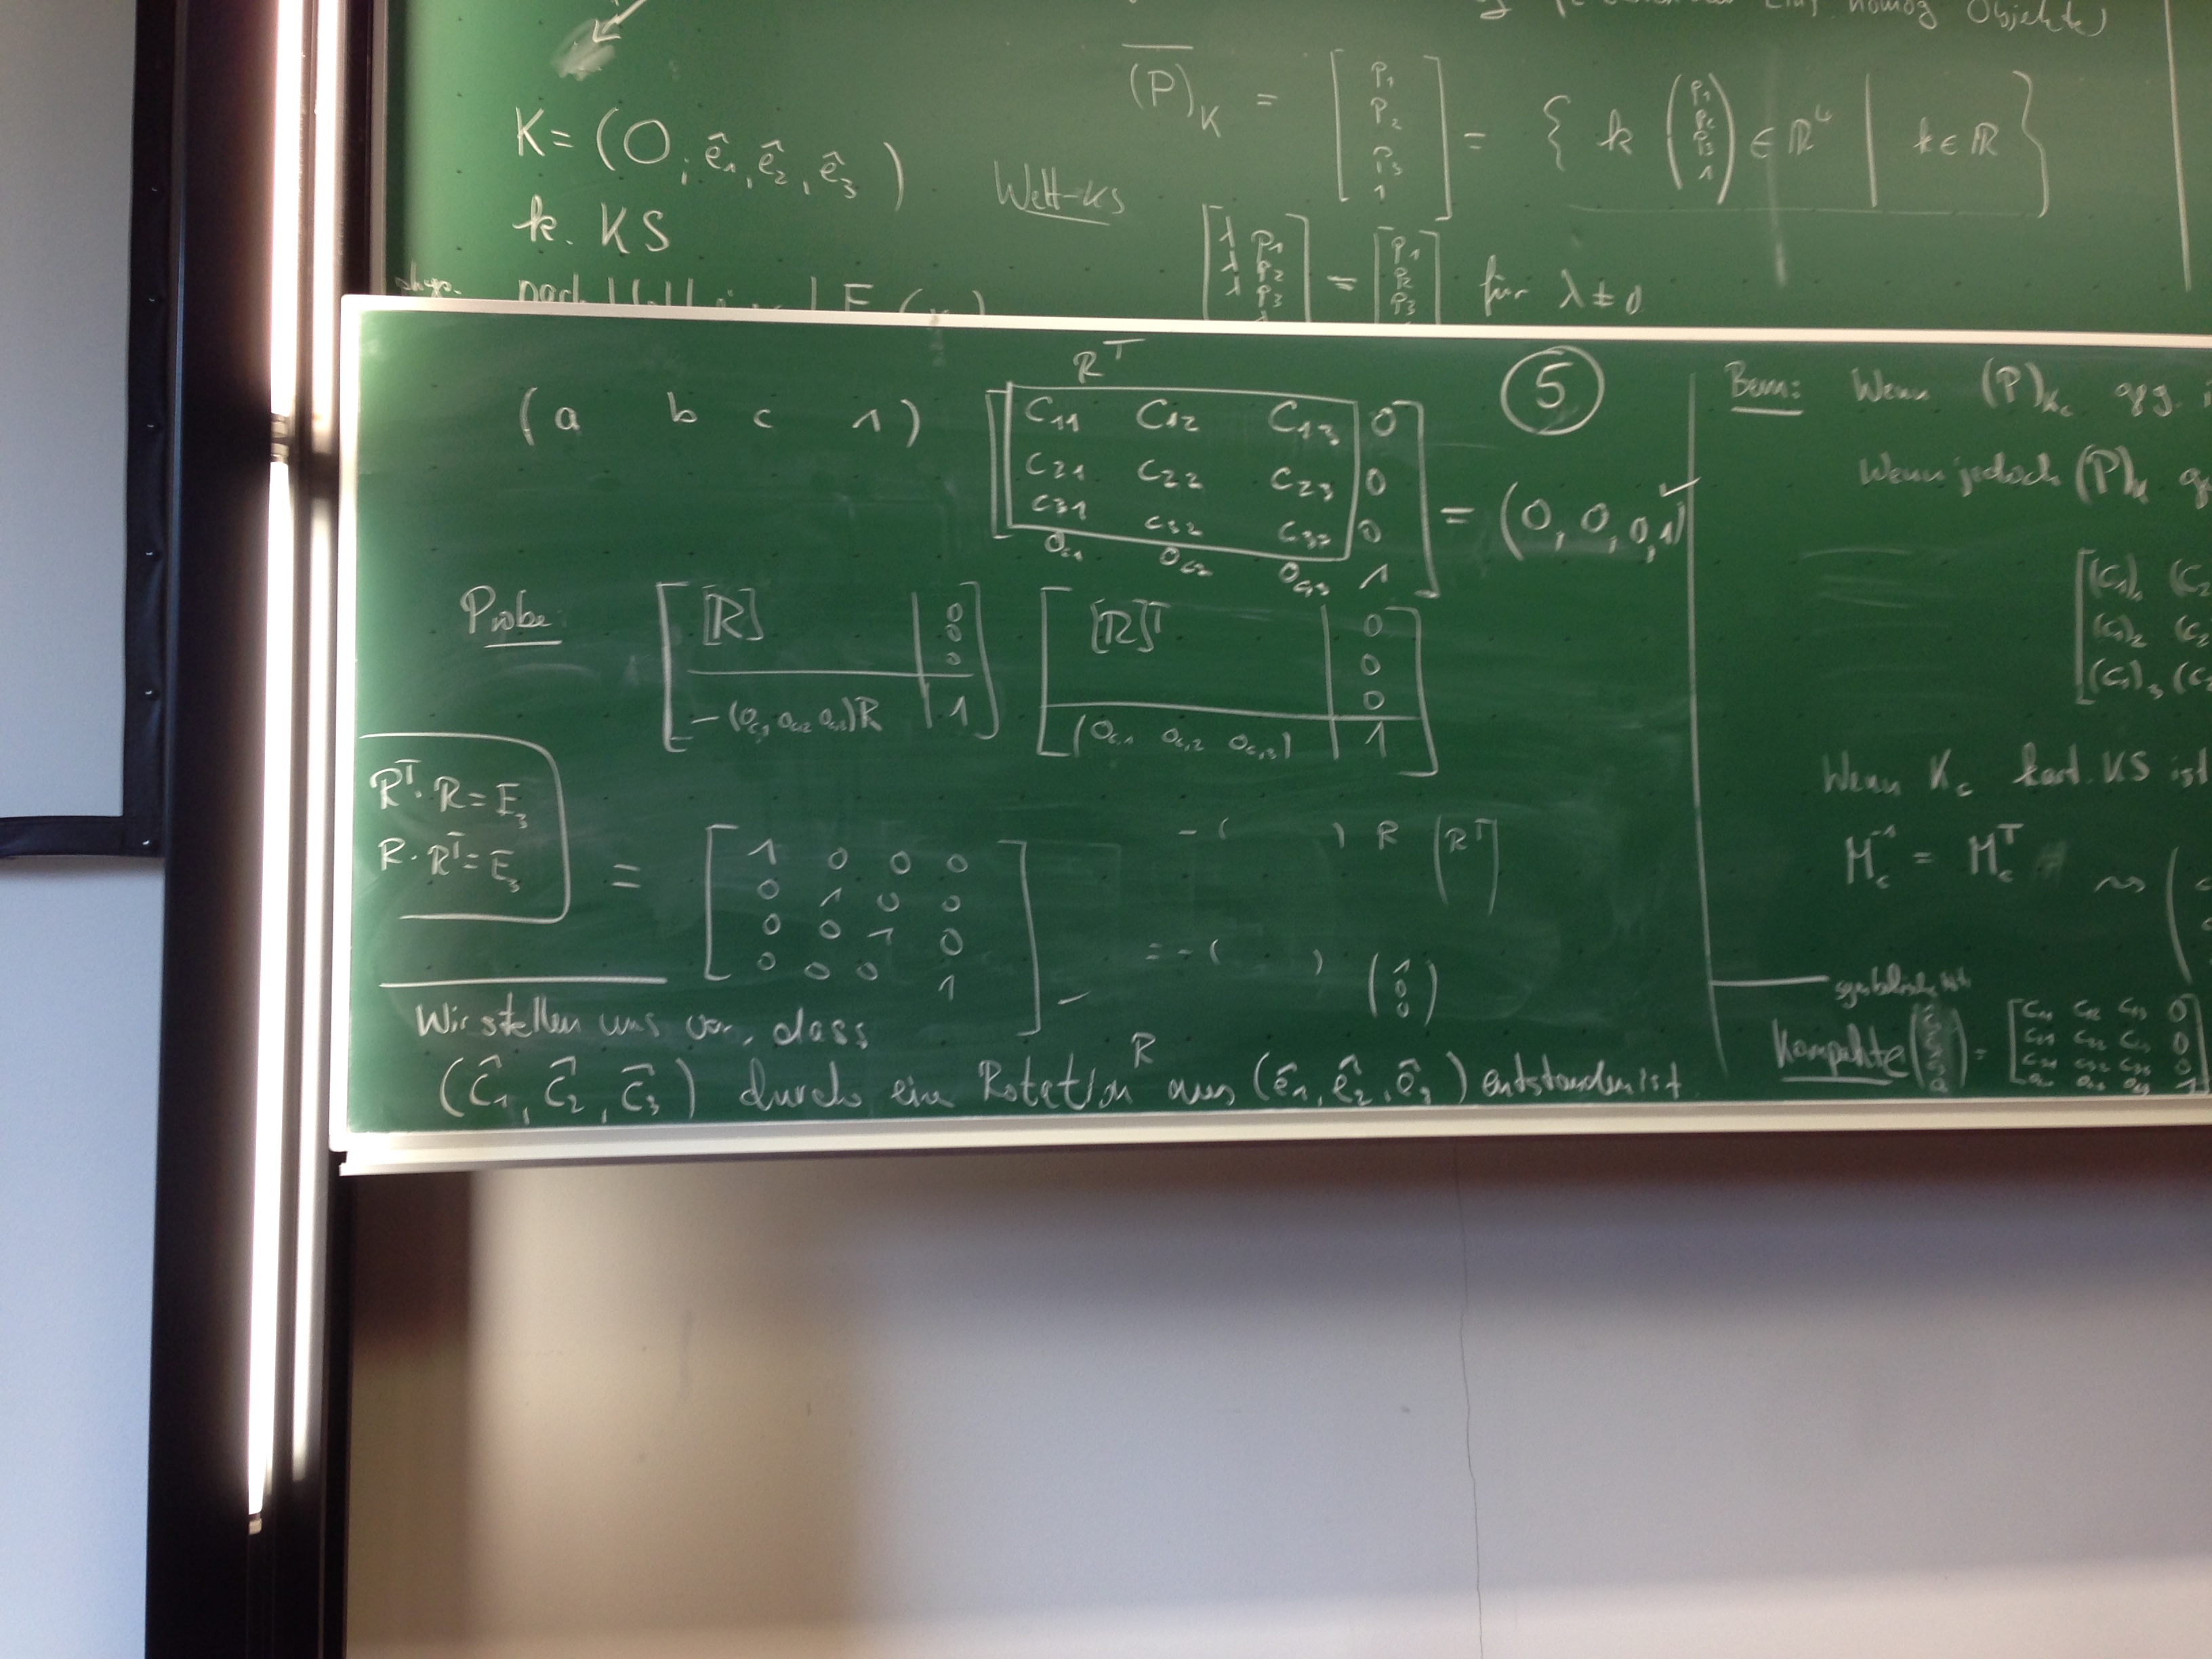 Objekte)
K = (O; ê₁, ê₂, ê₃)
k. KS
Welt-KS
(P)_K = [p₁ p₂ p₃ 1] = { k (p₁ p₂ p₃ 1) ∈ ℝ⁴ | k ∈ ℝ }
[λp₁ λp₂ λp₃] = [p₁ p₂ p₃] für λ ≠ 0
R^T
(a b c 1)
[C₁₁ C₁₂ C₁₃ 0
C₂₁ C₂₂ C₂₃ 0
C₃₁ C₃₂ C₃₃ 0
O_c,1 O_c,2 O_c,3 1]
= (0, 0, 0, 1) ✓
⑤
Probe:
[ [R] | 0 0 0
-(O_c,1 O_c,2 O_c,3)R | 1 ]
[ [R]^T | 0 0 0
(O_c,1 O_c,2 O_c,3) | 1 ]
R^T · R = E₃
R · R^T = E₃
= [1 0 0 0
0 1 0 0
0 0 1 0
0 0 0 1]
-( ) R (R^T)
= -( ) (1 0 0)
Wir stellen uns vor, dass
(ĉ₁, ĉ₂, ĉ₃) durch eine Rotation R aus (ê₁, ê₂, ê₃) entstanden ist.
Bem: Wenn (P)_Kc geg.
Wenn jedoch (P)_K
[(C₁)₁ (C₂
(C₁)₂ (C₂
(C₁)₃ (C₂
Wenn K_c kart. KS ist
M_c^-1 = M_c^T
Kompakte
= [C₁₁ C₁₂ C₁₃ 0